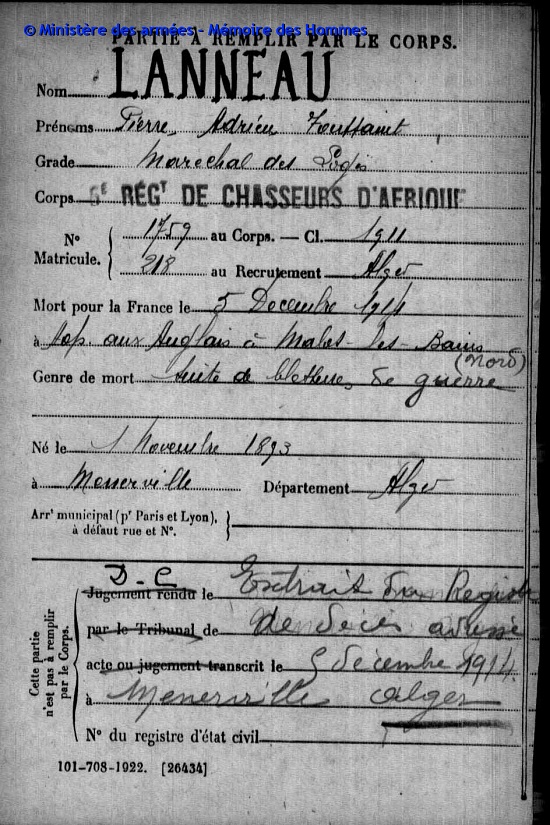 © Ministère des armées - Mémoire des Hommes
PARTIE À REMPLIR PAR LE CORPS.
Nom LANNEAU
Prénoms Pierre Adrien Toussaint
Grade Maréchal des Logis
Corps 6e RÉGT DE CHASSEURS D'AFRIQUE
N° Matricule. 1759 au Corps. — Cl. 1911
218 au Recrutement Alger
Mort pour la France le 5 Décembre 1914
à hop aux Anglais à Malo-les-Bains
(Nord)
Genre de mort suite de blessures de guerre
Né le 1 Novembre 1893
à Menerville Département Alger
Arrt municipal (pr Paris et Lyon),
à défaut rue et N°.
Cette partie n'est pas à remplir par le Corps.
D-C
Jugement rendu le Extrait du Registre
par le Tribunal de de décès adressé
acte ou jugement transcrit le 5 décembre 1914
à Menerville Alger
N° du registre d'état civil
101-708-1922. [26434]